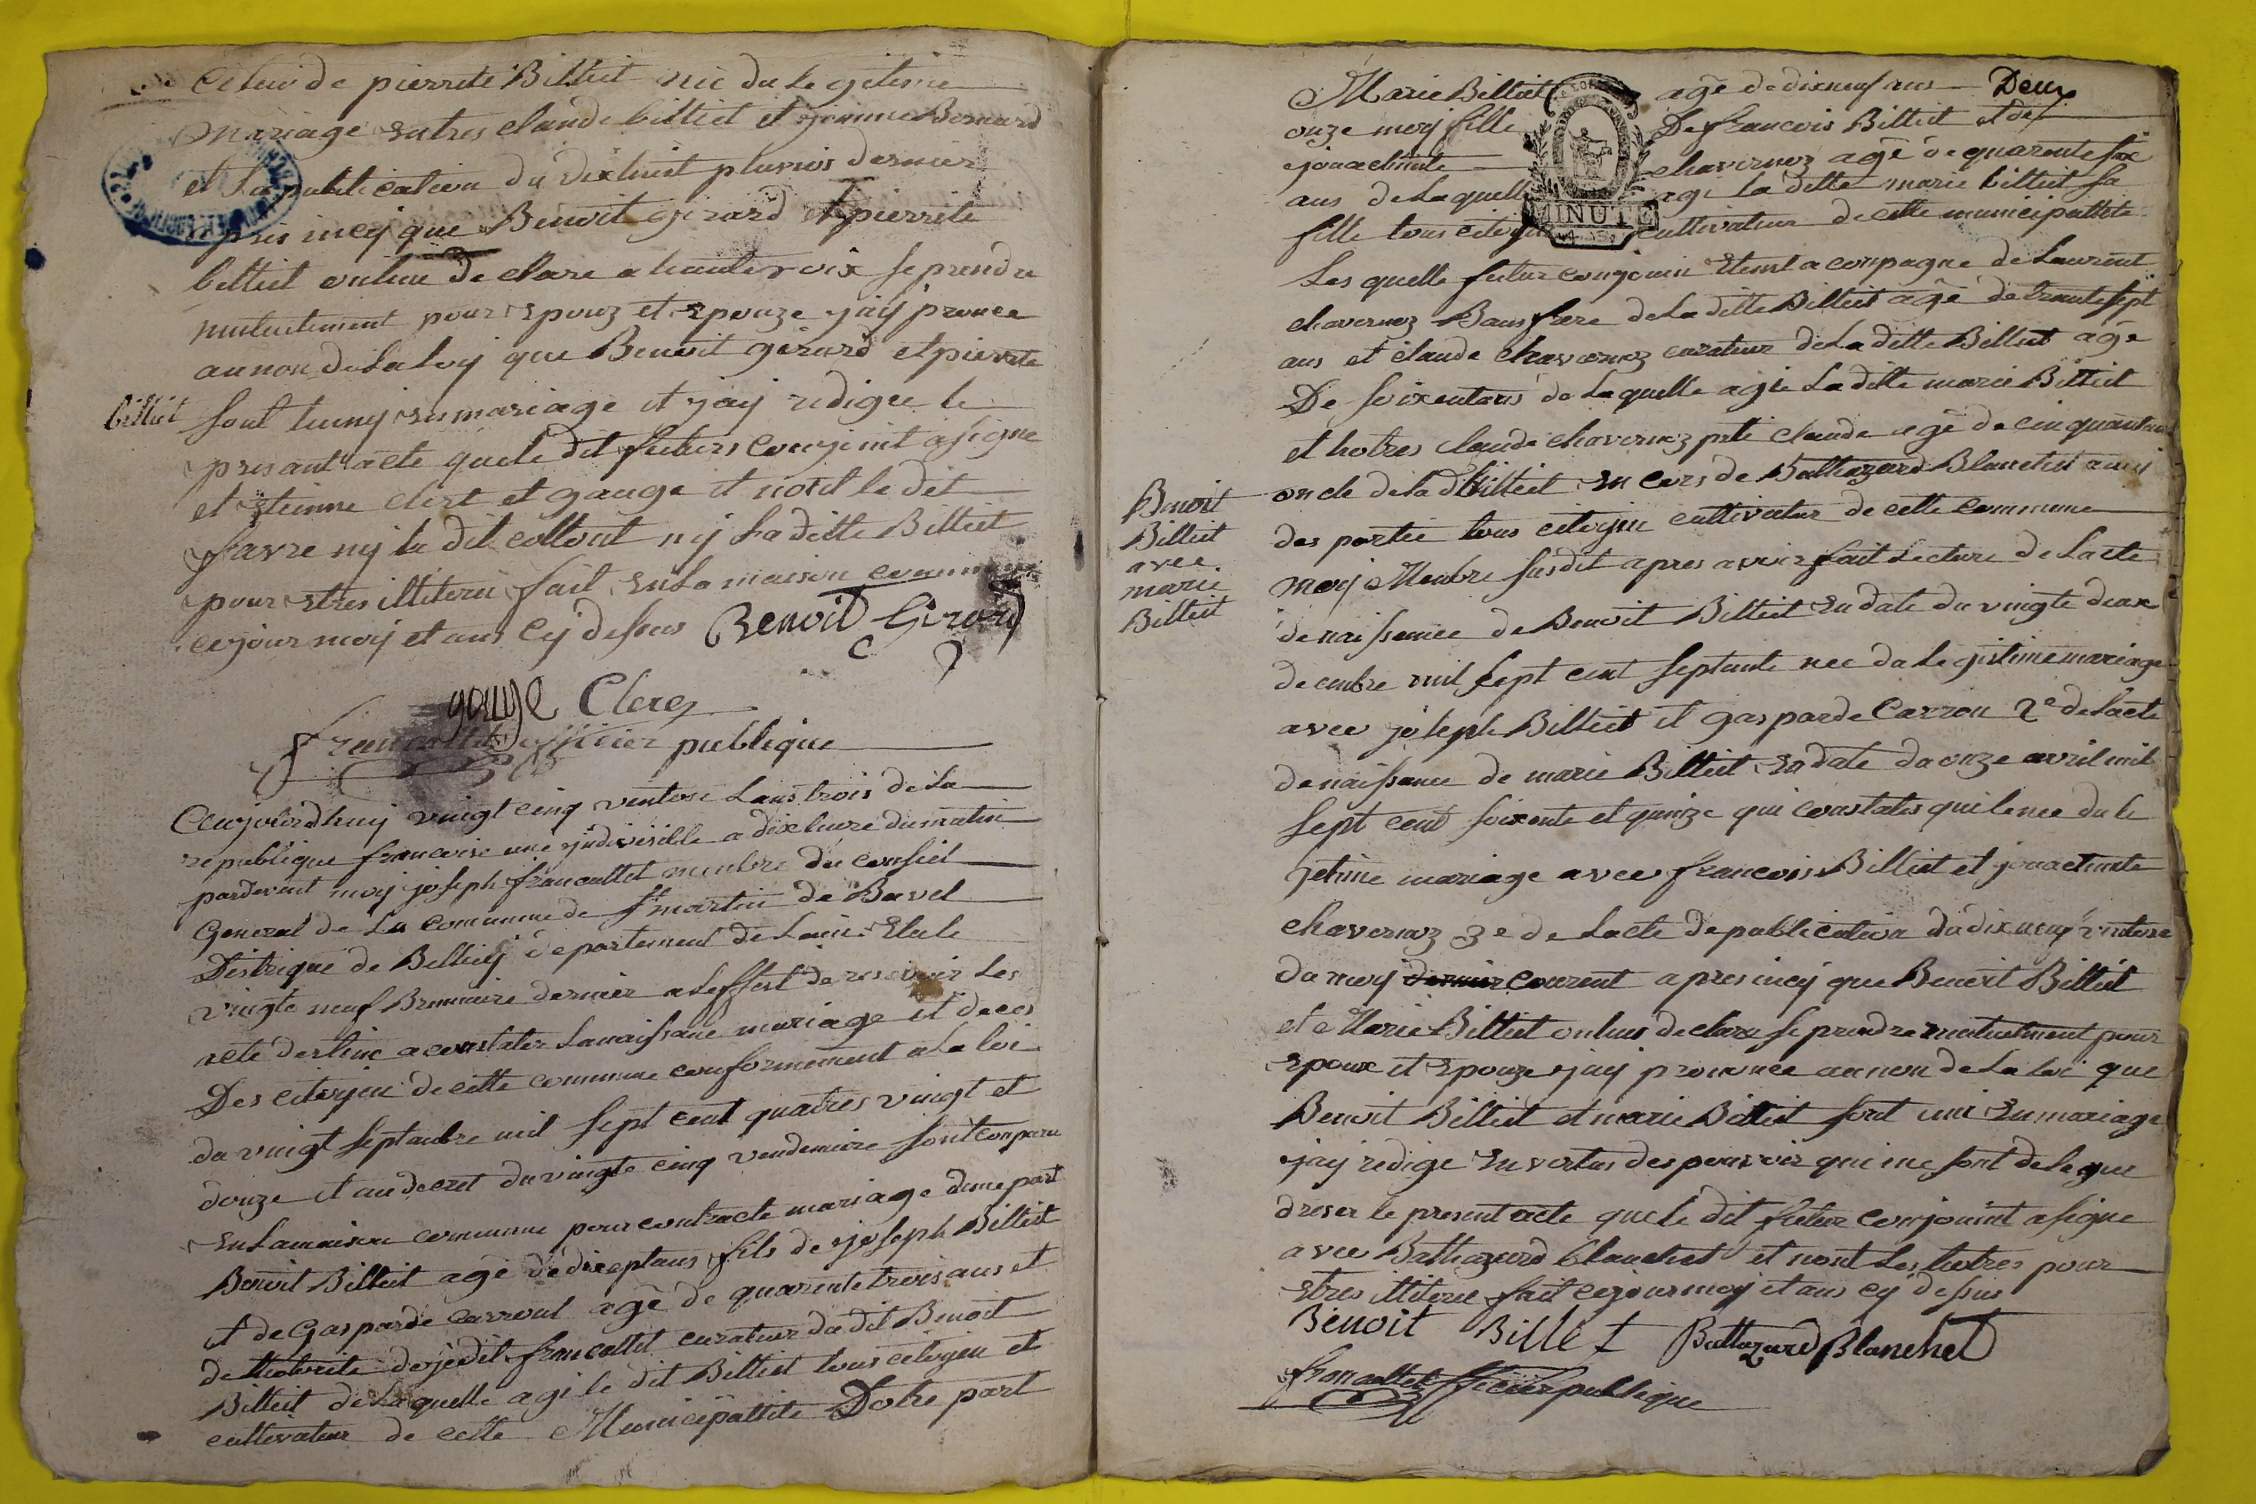 Celui de pierrete Billiet née du legitime
mariage entres claude billiet et jeanne Bernard
et la publication du dixhuit pluvios dernier
apres incy que Benoit girard et pierrete
billiet onlun declare a haute voix se prendre
mutuelement pour epouz et epouze j'ay pronce
au non de la loy que Benoit girard et pierrete
billiet
sont tuny en mariage et j'ay redigee le
presant acte que le dit futurs conjoint a signe
et Etienne clert et gauge et nont le dit
favre ny le dit collont ny la ditte Billiet
pour etres illiterée fait en la maison commune
ce jour moy et ans cy dessus Benoit Girard
gauge Clerc
francottet officier publique
Ceujourdhuy vingt cinq ventose lans trois de la
republique francoise une indivisible a dix heure du matin
pardevent moy joseph francottet membre du conseil
General de la commune de st martin de Bavel
Distrique de Belley departement de Lain Elu le
vingte neuf Brumaire dernier a leffest de resevoir les
acte destine a constater la naissance mariage et deces
Des citoyen de cette commune conformement a la loi
du vingt septembre mil sept cent quatres vingt et
douze et au decret du vingte cinq vendemiaire sont conparu
en la maison commune pour contracte mariage dune part
Benoit Billiet agé de diceptans fils de joseph Billiet
et de Gasparde Carront agé de quarente trois ans et
de lhotorite de jedit francottet curateur du dit Benoit
Billiet de laquelle agi le dit Billiet tous citoyen et
cultivateur de cette Municipallite Dotre part
Marie Billiet agé de dixneuf ans Deux
onze moy fille De francois Billiet et de
jonaclinte chavernoz agé de quarente six
ans de laquelle agi la ditte marie billiet sa
MINUTE
fille tous citoyen cultivateur de cette municipallite
Les quelle futur conjouin etent a conpagne de Laurent
chavernoz Beaufrere de la ditte Billiet agé de trante sept
ans et claude chavernoz curateur de la ditte Billiet agé
De soixentans de laquelle agie la ditte marie Billiet
et hotres claude chavernoz pti claude agé de cinquantans
oncle de la d billiet en cors de Balthazard Blanchet amy
Benoit
Billiet
avec
marie
Billiet
des partie tous citoyin cultivateur de cette commune
moy Membre susdit apres avoir fait lecture de lacte
de naissance de Benoit Billiet en date du vingte deux
decenbre mil sept cent septante nee du legistime mariage
avec joseph Billiet et gasparde Carron 2e de lacte
de naissance de marie Billiet en date du onze avril mil
sept cent soixente et quinze qui constates quil e nee du le
jetime mariage avec francois Billiet et jonaclinte
chavernoz 3e de lacte de publication du dixneuf ventose
du moy dernier courent apres incy que Benoit Billiet
et Marie Billiet onlun declare se prendre mutuelment pour
epoux et epouze j'ay prononcé au non de la loi que
Benoit Billiet et marie Billiet sont uni en mariage
j'ay redige en vertus des pouvoir qui me sont delegue
dreser le present acte que le dit futur conjouint a signe
avec Bathazard blanchet et nont les hotres pour
etres illiterée fait ce jour moy et ans cy dessus
Benoit Billet Balthazard Blanchet
francottet officier publique